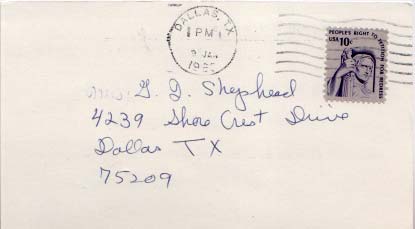 DALLAS, TX
PM
JAN
PEOPLE'S RIGHT TO PETITION FOR REDRESS
USA 10c
G J Shephead
4239 Shore Crest Drive
Dallas TX
75209